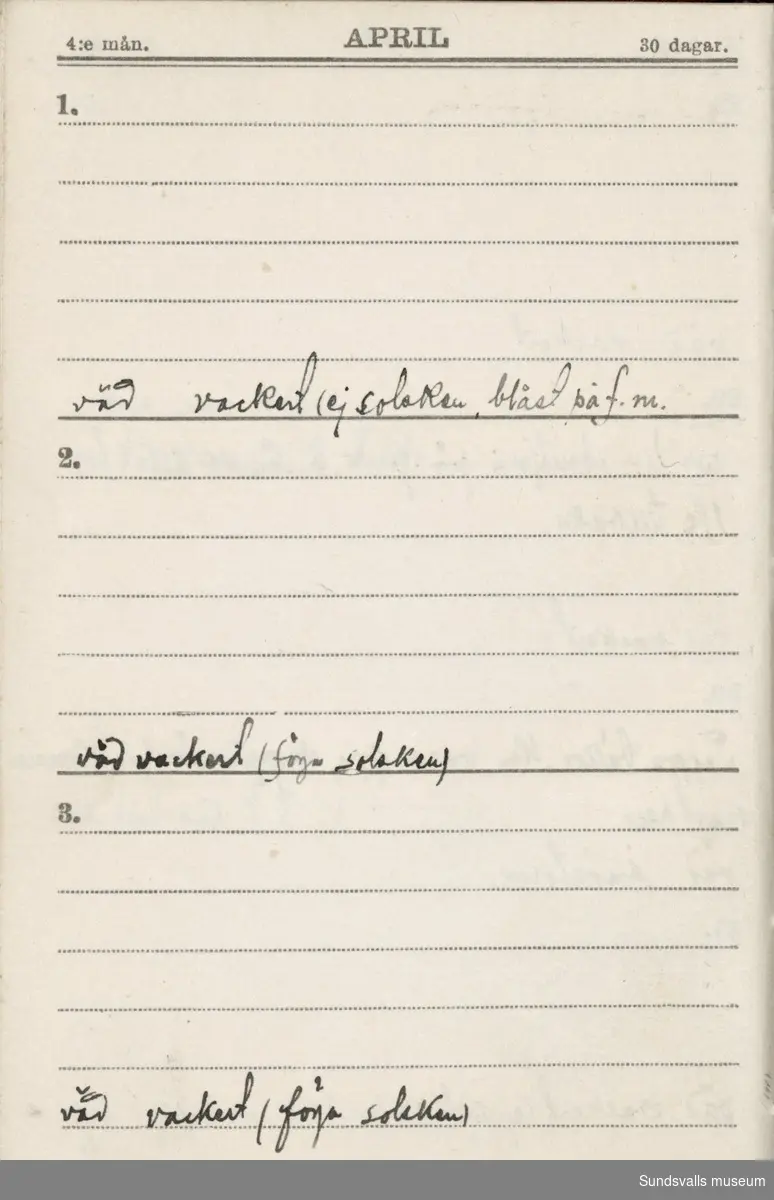 4:e mån. APRIL 30 dagar.
1.
väd vackert (ej solsken, blåst på f.m.
2.
väd vackert (föga solsken)
3.
väd vackert (föga solsken)
Sundsvalls museum